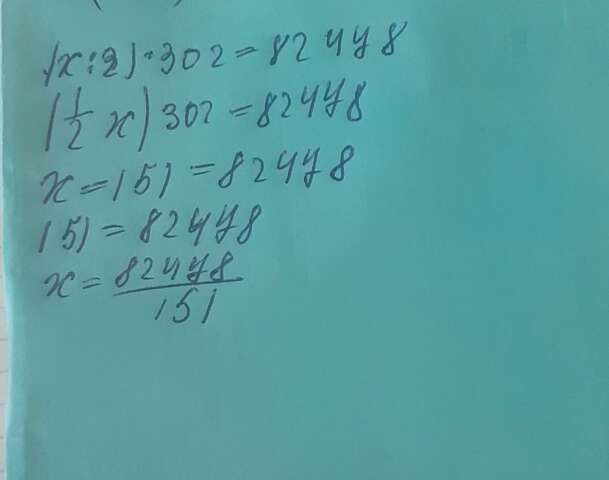 (x:2)·302=82448
(1/2 x)302=82448
x=151=82448
151=82448
x=82448/151